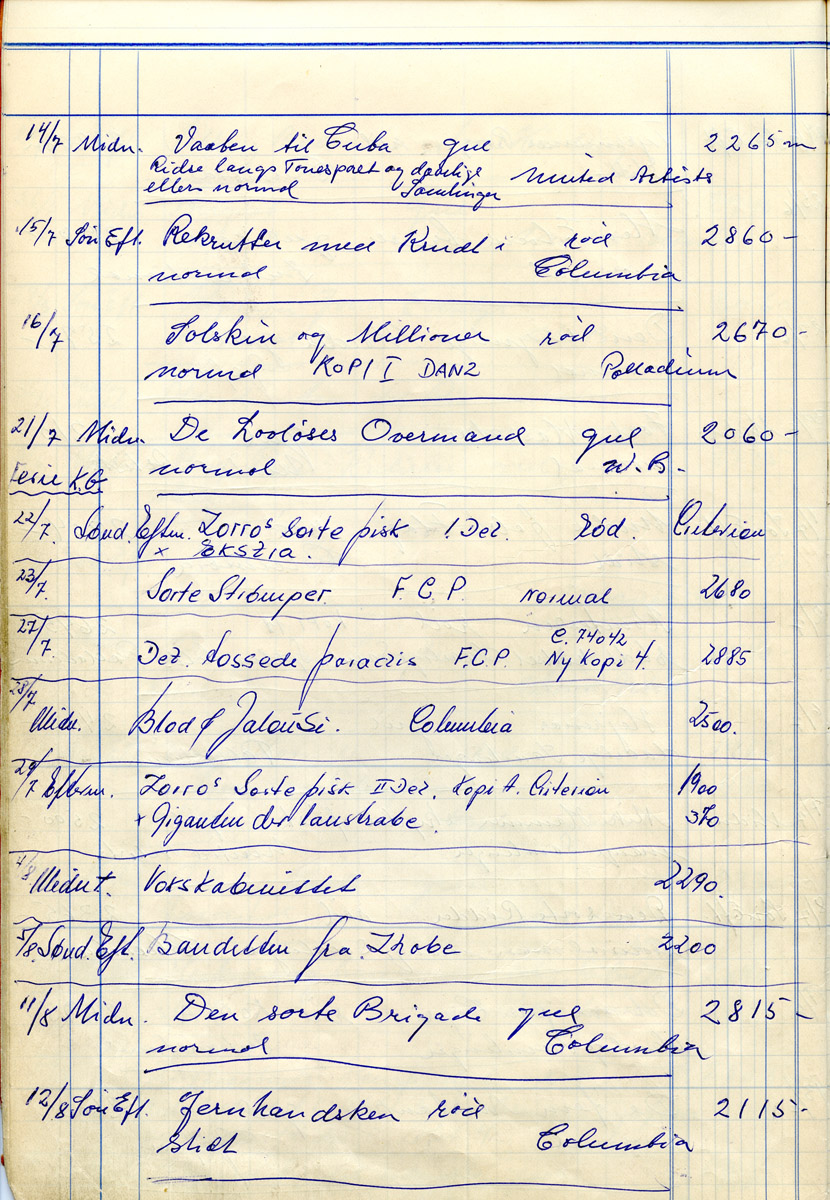 14/7 Midn. Vaaben til Cuba gul 2265 m
Ridse langs Tonesporet og daarlige
ellers normal Samlinger United Artists
15/7 Søn Eft. Rekrutter med Krudt i rød 2860 -
normal Columbia
16/7 Solskin og Millioner rød 2670 -
normal KOPI I DANZ Palladium
21/7 Midn. De Lovløses Overmand gul 2060 -
Ferie K.G normal W.B. -
22/7. Sønd Eftm. Zorro's Sorte pisk I Del. Rød. Criterion
x EKSTRA.
23/7. Sorte Strömper. F.C.P. normal 2680
C. 74042
27/7. Det tossede paradis F.C.P. Ny Kopi 4. 2885
28/7
Midn. Blod & Jalousi. Columbia 2500.
29/7 Eftm. Zorro's Sorte pisk II Del. Kopi 4. Criterion 1900
+ Giganten der 370
4/8 Midnt. Vokskabinettet 2290
5/8. Sønd. Eft. Banditten fra Zhobe 2200
11/8 Midn. Den sorte Brigade gul 2815 -
normal Columbia
12/8 Søn Eft. Jernhandsken rød 2115 -
slidt Columbia